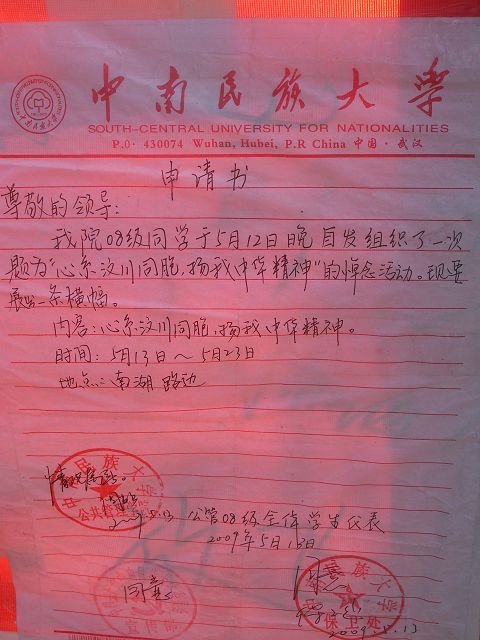 中南民族大学
SOUTH-CENTRAL UNIVERSITY FOR NATIONALITIES
P.O. 430074 Wuhan, Hubei, P.R China 中国·武汉
申请书
尊敬的领导:
我院08级同学于5月12日晚自发组织了一次
题为“心系汶川同胞,扬我中华精神”的悼念活动。现要
展出一条横幅。
内容:心系汶川同胞,扬我中华精神。
时间:5月13日~5月23日
地点:南湖路边
情况属实。
公共管理学院
2009.5.13
公管08级全体学生代表
2009年5月13日
同意
宣传部
同意
保卫处
2009.5.13